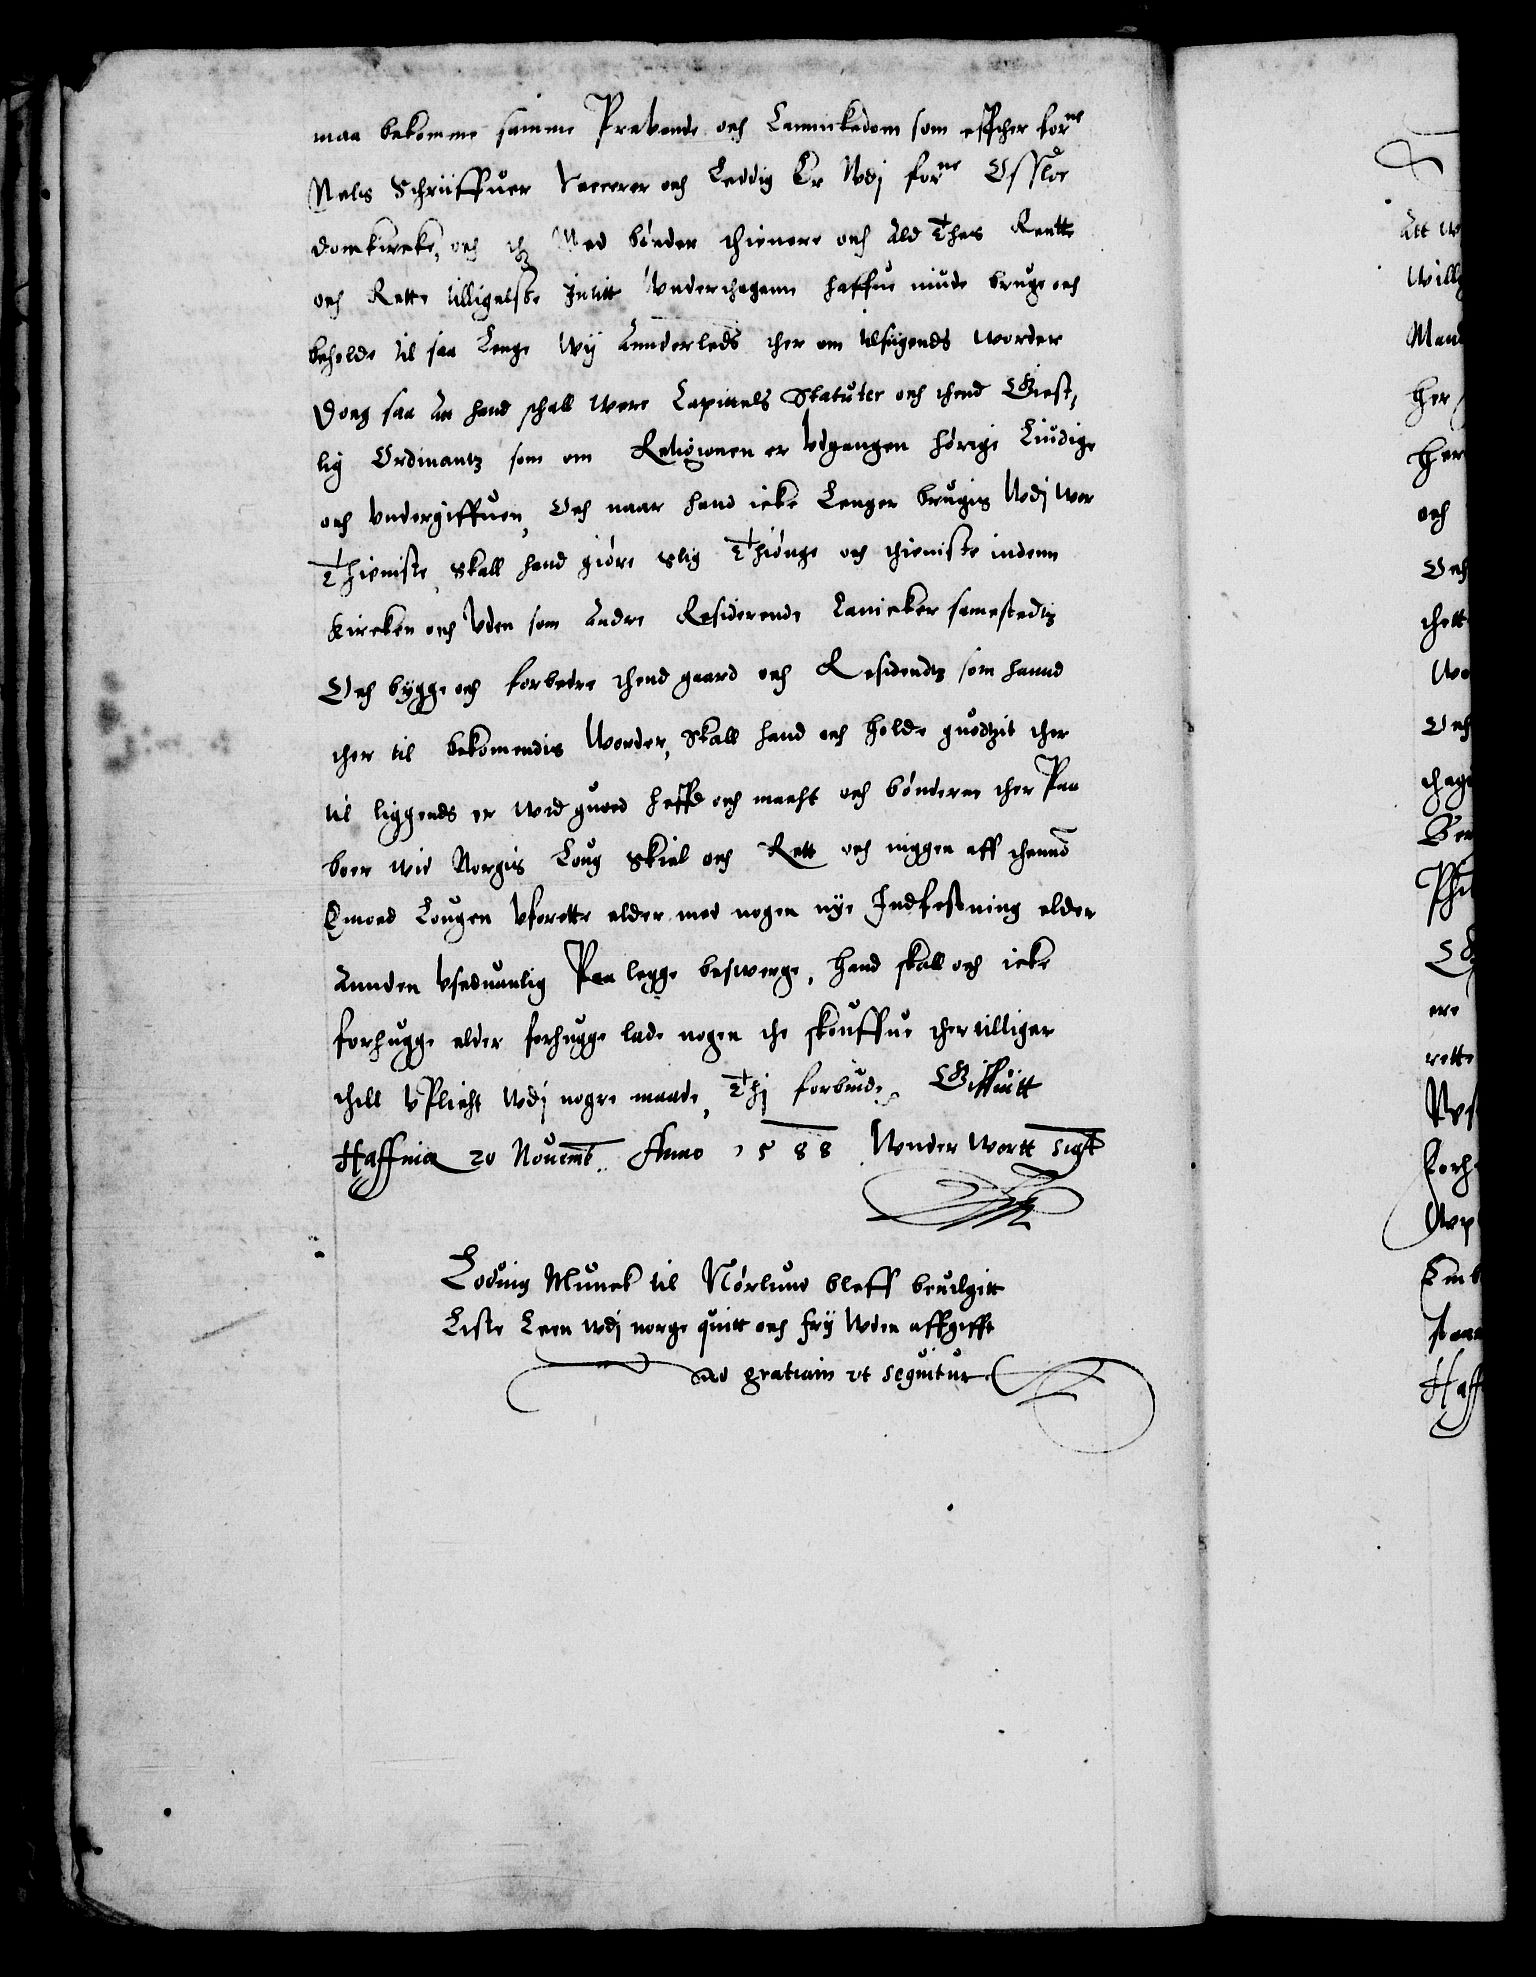 maa bekomme samme Prebende och Cannickedom som effther forne
Nels Schriiffuer vaccerer och Leddig Er Wdj forne Opsloe
domkircke, och thz Med bønder thienere och Ald Thes Rentte
och Rette tilligelse Jntitt Vnderthagenn haffue niude bruge och
beholde til saa Lenge Wij Annderleds ther om tilsiigends worder
Doeg saa Att hand schall were Capittels Statuter och thend Giest,
lig Ordinantz som om Religionen er Vdgangen hørigi Liudige
och Vndergiffuen, Och naar hand icke Lenger brugis Wdj Wor
Thieniste, Skall hand giøre slig Thiønge och thieniste indenn
Kircken och Vden som Andre Residerende Canicker samestedtz
Och bygge och forbedre thend gaard och Residendtz som hannd
ther til bekomendis Worder, Skall hand och holde guodtzit ther
til liggends er wed guoed heffd och macht och bønderne ther Paa
boer wid Norgis Loug Skiel och Rett och inggen aff thennd
Emoed Lougen Vforette elder med nogen nye Indfestning elder
Annden Vseduanlig Paa legge beswerge, Hand skall och icke
forhugge elder forhugge lade nogen the skouffue ther tilliger
thill Vplicht Wdj nogre maade, Thj forbiude Giffuitt
Haffnia 20 Nouemb. Anno 1588 Wnder Wortt Sigt
Loduig Munck til Nørlund bleff beuilgitt
Liste Leen wdj norge quitt och frij Wden affgifft
ad gratiam vt seqnitur